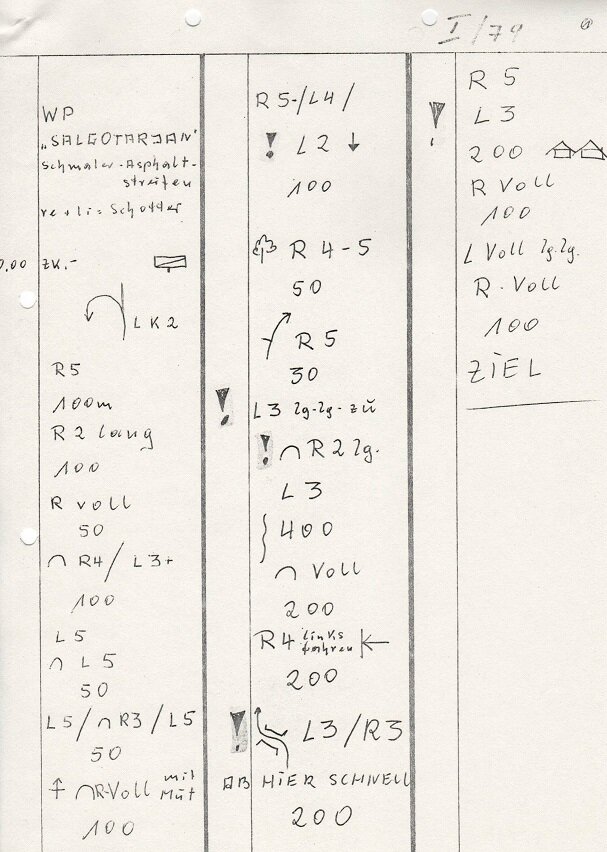 I/79
WP
„SALGOTARJAN"
Schmaler-Asphalt-
streifen
re+li= Schotter
0.00 ZK.-
LK2
R5
100m
R2 lang
100
R voll
50
∩ R4/ L3+
100
L5
∩ L5
50
L5/∩R3/L5
50
∩R-Voll mit Mut
100
R5-/L4/
! L2 ↓
100
R4-5
50
R5
30
! L3 lg-lg-zu
! ∩ R2 lg.
L3
400
∩ Voll
200
R4 links fahren
200
! L3/R3
AB HIER SCHNELL
200
R5
! L3
200
R Voll
100
L Voll lg.lg.
R-Voll
100
ZIEL